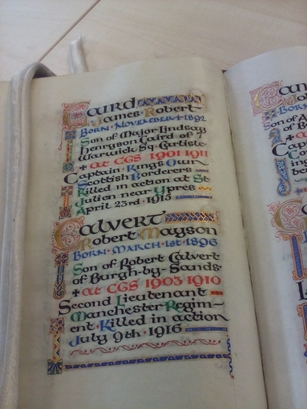 Caird
James · Robert
Born · November · 4 · 1892
Son of Major · Lindsay
Henryson Caird of 1
Warwick · Sq · Carlisle
+ at CGS 1901 · 1911
Captain · Kings · Own
Scottish Borderers
Killed in action at St
Julien near Ypres
April 23rd · 1915
Calvert
Robert Mayson
Born · March · 1st · 1896
Son of Robert Calvert
of Burgh · by · Sands
+ at CGS 1903 1910
Second Lieutenant
Manchester Regim-
ent · Killed in action
July 9th · 1916